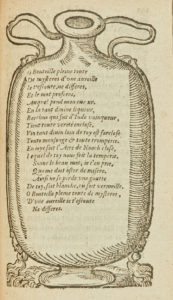 O Bouteille pleine toute
De mysteres d'vne aureille
Ie t'escoute, ne differes,
Et le mot proferes,
Auquel pend mon cœur.
En la tant diuine liqueur,
Bacchus qui fut d'Inde vainqueur,
Tient toute verité enclose.
Vin tant diuin loin de toy est forclose
Toute mensonge & toute tromperie.
En ioye soit l'Aire de Noach close,
Lequel de toy nous fist la temperie.
Sonne le beau mot, ie t'en prie,
Qui me doit oster de miseres.
Ainsi ne se perde vne goutte
De toy, soit blanche, ou soit vermeille.
O Bouteille pleine toute de mysteres,
D'vne aureille ie t'escoute
Ne differes.